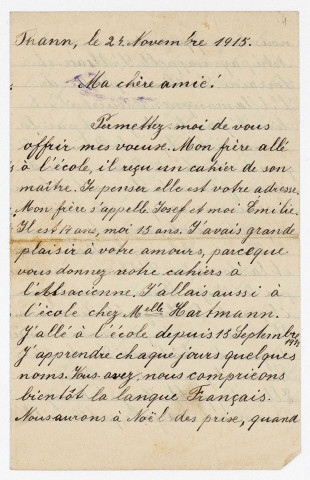 Thann, le 24 Novembre 1915.
Ma chère amie!
Permettez-moi de vous
offrir mes voeuse. Mon frère allé
à l'école, il reçu un cahier de son
maître. Je penser elle est votre adresse.
Mon frère s'appelle Josef et moi Emilie.
Il est 12 ans, moi 15 ans. J'avais grande
plaisir à votre amours, parceque
vous donnez votre cahiers à
l'Alsacienne. J'allais aussi à
l'école chez Melle Hartmann.
J'allé à l'école depuis 15 Septembre
J'apprendre chaque jours quelques
noms. Vous avez, nous compricons
bientôt la langue Français.
Nous aurons à Noël des prise, quand